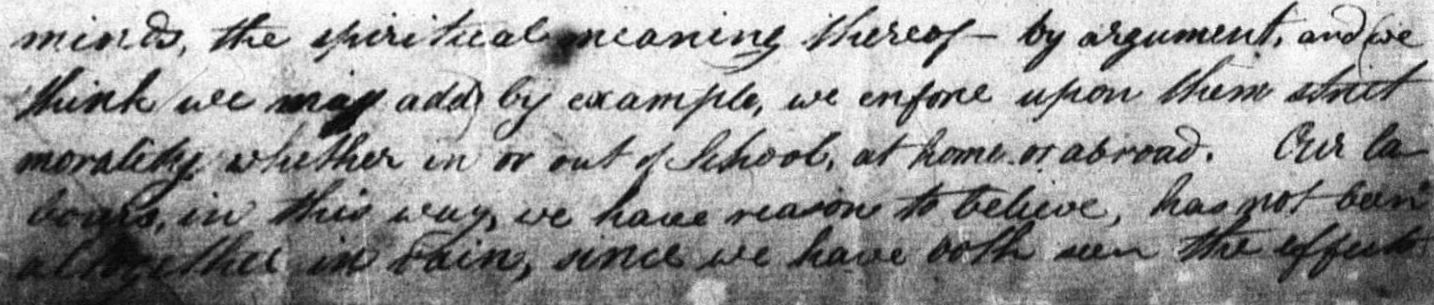 minds, the spiritual meaning thereof – by argument, and (we
think we may add) by example, we enforce upon them strict
morality, whether in or out of School, at home or abroad. Our la-
bours, in this way, we have reason to believe, has not been
altogether in vain, since we have both seen the effects